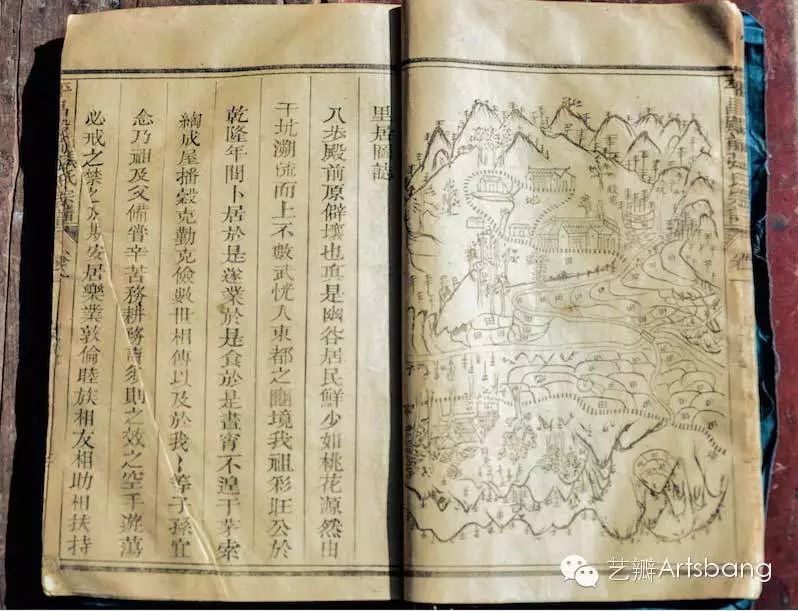 里居圖誌
八步殿前原僻壤也真是幽谷居民鮮少如桃花源然由
干坑溯流而上不數武恍入東都之國境我祖彩旺公於
乾隆年間卜居於是遂業於是食於是晝宵不遑于茅索
綯成屋播穀克勤克儉數世相傳以及於我等子孫宜
念乃祖及父備嘗辛苦務耕務讀須則之效之空手遊蕩
必戒之禁之及安居樂業敦倫睦族相友相助相扶持
地
田
艺瓣Artsbang